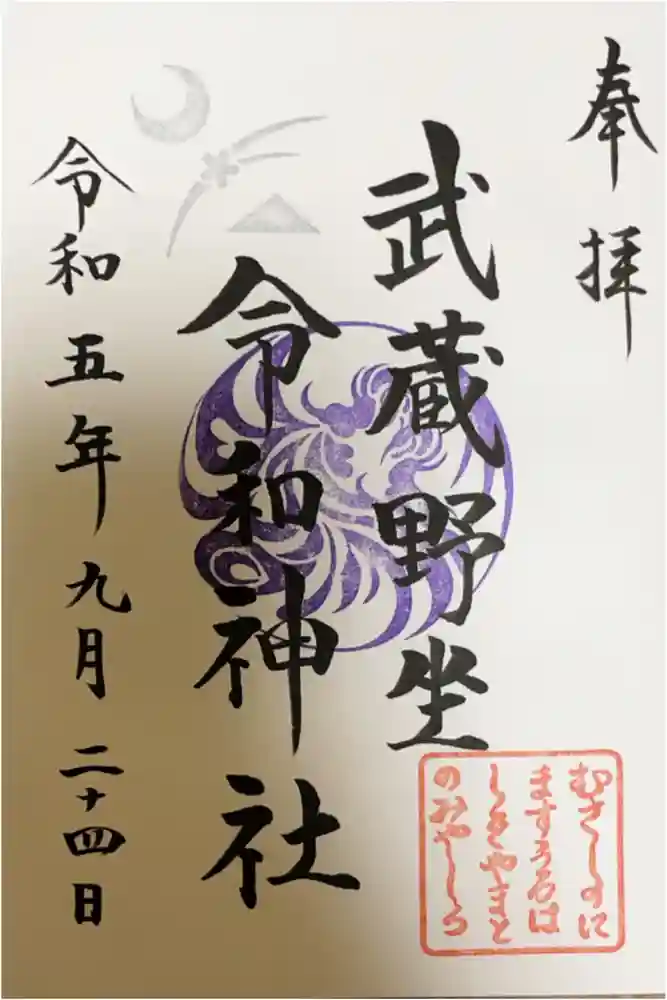 奉拝
武蔵野坐
令和神社
令和五年九月二十四日
むさしのに
ますうるは
しきやまと
のみやしろ